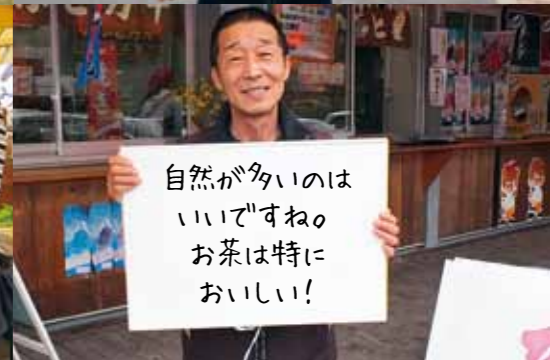 自然が多いのは
いいですね。
お茶は特に
おいしい!